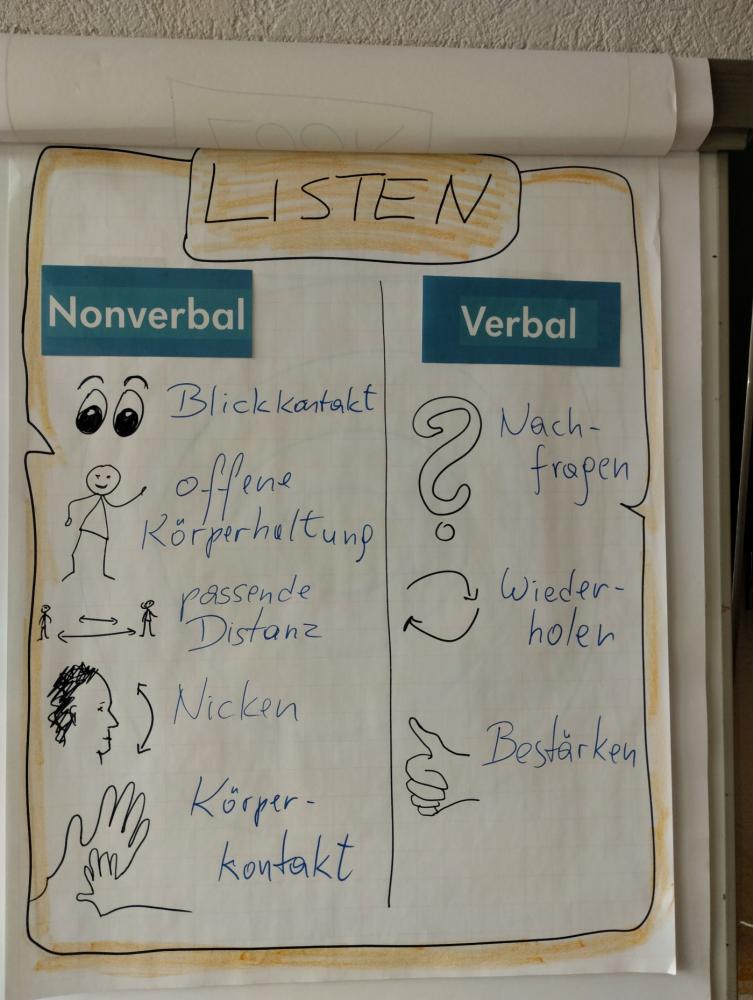 LOOK
LISTEN
Nonverbal
Blickkontakt
offene
Körperhaltung
passende
Distanz
Nicken
Körper-
kontakt
Verbal
Nach-
fragen
Wieder-
holen
Bestärken